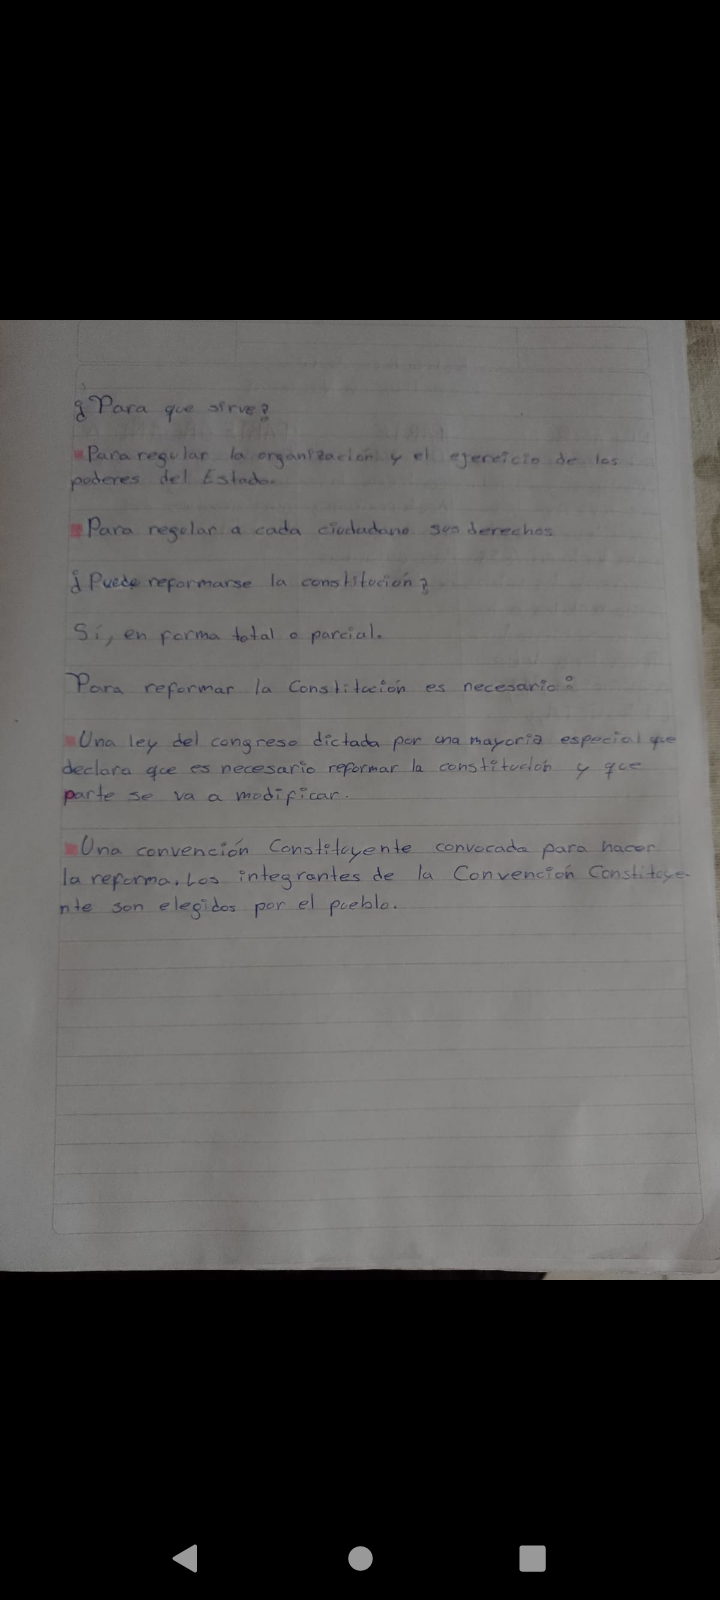 ¿Para que sirve?
Para regular la organización y el ejercicio de los
poderes del Estado.
Para regular a cada ciudadano sus derechos
¿Puede reformarse la constitución?
Sí, en forma total o parcial.
Para reformar la Constitución es necesario:
Una ley del congreso dictada por una mayoria especial que
declara que es necesario reformar la constitución y que
parte se va a modificar.
Una convención Constituyente convocada para hacer
la reforma. Los integrantes de la Convención Constituye-
nte son elegidos por el pueblo.